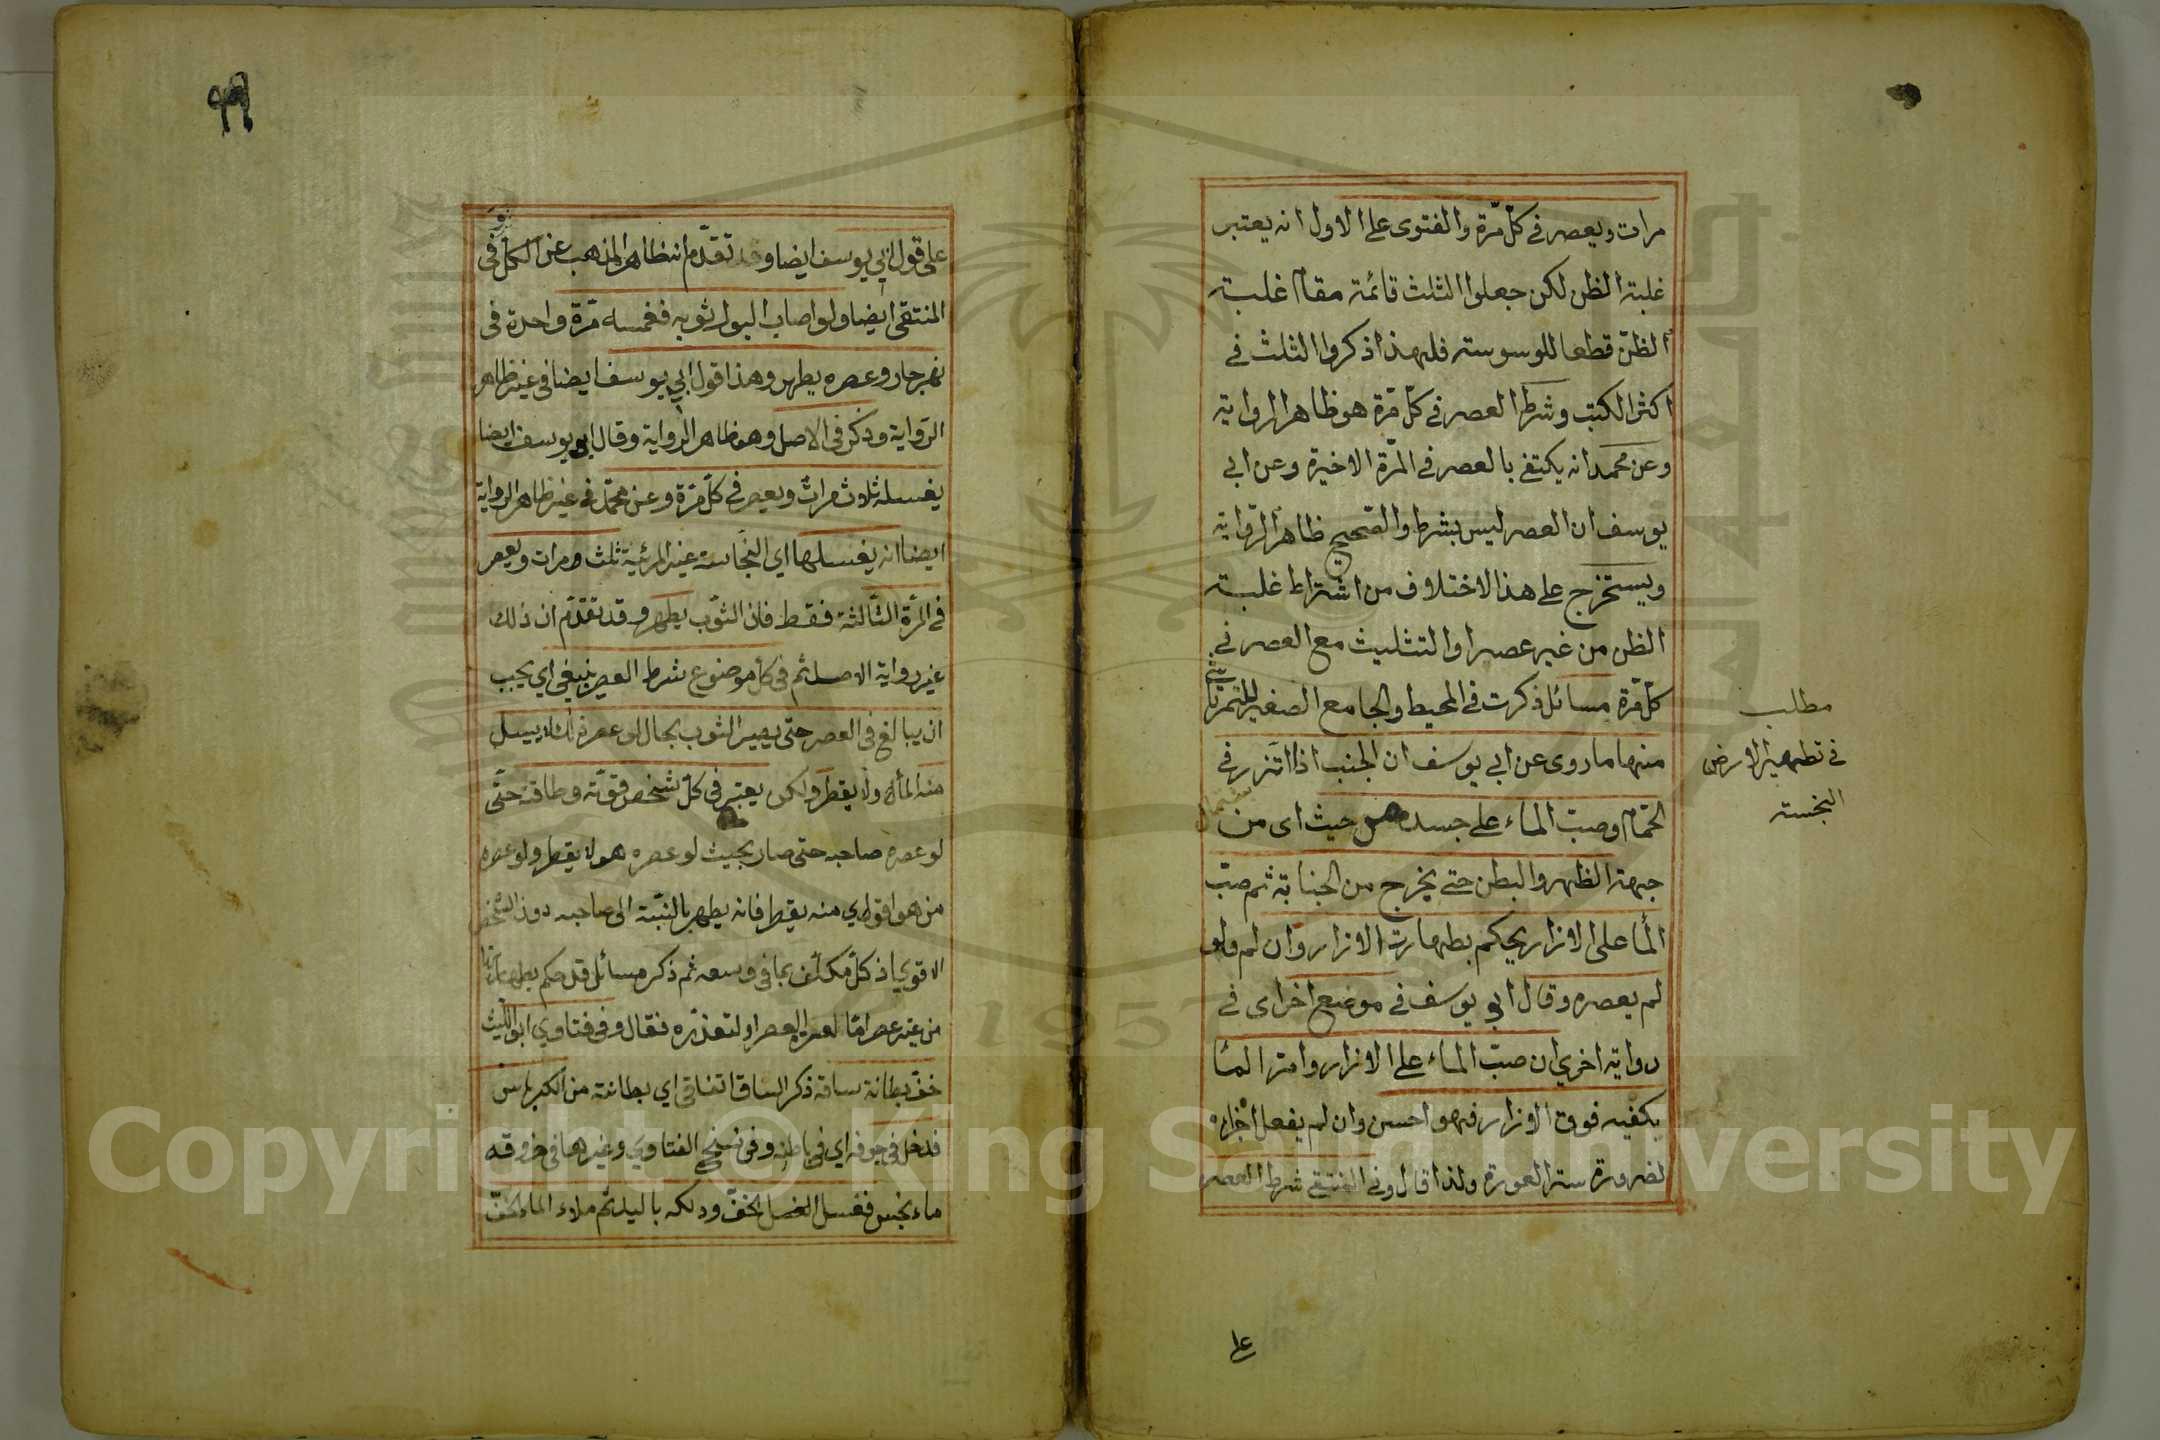 مرات ويعصر في كلّ مّرة والفتوى على الاول انه يعتبر
غلبة الظن لكن جعلوا الثلث قائمة مقام غلبة
الظنّ قطعا للوسوسته فلهذا ذكروا الثلث في
اكثر الكتب وشرط العصر في كلّ مّرة هو ظاهر الرواية
وعن محمد انه يكتفي بالعصر في المّرة الاخيرة وعن ابي
يوسف ان العصر ليس بشرط والصّحيح ظاهر الرّواية
ويستخرج على هذا الاختلاف من اشتراط غلبة
الظن من غير عصر او التثليث مع العصر في
كلّ مّرة مسائل ذكرت في المحيط والجامع الصغير للتمرتاشي
منها ما روى عن ابي يوسف ان الجنب اذا اتزر في
الحمّام وصبّ الماء على جسده من حيث اى من
جهة الظهر والبطن حتى يخرج من الجنابة ثم صبّ
الماء على الازار يحكم بطهارة الازار وان لم ولو
لم يعصره وقال ابو يوسف في موضع اخر اى في
رواية اخري ان صبّ الماء على الازار وامتر الماء
بكفيه فوق الازار فهو احسن وان لم يفعل اجزاه
لضرورة ستر العورة ولذا قال وفي المنتقى شرط العصر
مطلب
في تطهير الارض
النجسته
على
٤٩
على قول ابي يوسف ايضا وقد تقدّم ان ظاهر المذهب عن الكلّ في
المنتقى ايضا ولو اصاب البول ثوبه فغمسه مّرة واحدة في
نهر جار وعصره يطهر وهذا قول ابي يوسف ايضا في غير ظاهر
الرّواية وذكر في الاصل وهو ظاهر الرّواية وقال ابو يوسف ايضا
يغسله ثلاث مرات ويعصر في كلّ مّرة وعن محمّد في غير ظاهر الرواية
ايضا انه يغسلها اي النجاسة غير المرئية ثلث مرات ويعصر
في المرّة الثّالثة فقط فان الثوب يطهر وقد تقدّم ان ذلك
غير رواية الاصل ثم في كلّ موضوع شرط العصر ينبغي اي يجب
ان يبالغ في العصر حتى يصير الثوب بحال لو عصر ذلك لا يسيل
منه الماء ولا يقطر ولكن يعتبر في كلّ شخص قوّته وطاقته حتّى
لو عصره صاحبه حتى صار بحيث لو عصره هو لا يقطر ولو عصره
من هو اقوى منه يقطر فانه يطهر بالنسّبة الى صاحبه دون الشخص
الاقوي اذ كلّ مكلّف بما في وسعه ثم ذكر مسائل قد حكم بطهارتها
من غير عصر امّا لعسر العصر او لتعذّره فقال وفي فتاوي ابو اللّيث
خفّ بطانة ساقه ذكر الساق اتفاقي اي بطانته من الكرباس
فدخل في جوفه اي في باطنه وفي نسخ الفتاوي وغيرها في خروقه
ماء نجس فغسل الخفّ ودلكه باليد ثم ملاء الماء الخفّ
Copyright © King Saud University
1957